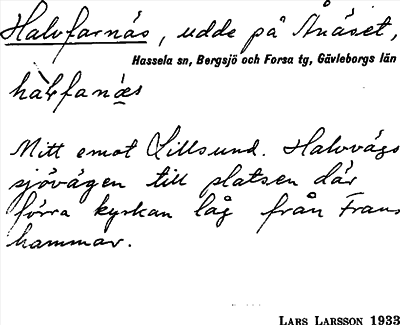 Halvfarnäs, udde på Ånäset,
Hassela sn, Bergsjö och Forsa tg, Gävleborgs län
halfanæs
Mitt emot Lillsund. Halvvägs
sjövägen till platsen där
förra kyrkan låg från Frans
hammar.
LARS LARSSON 1933